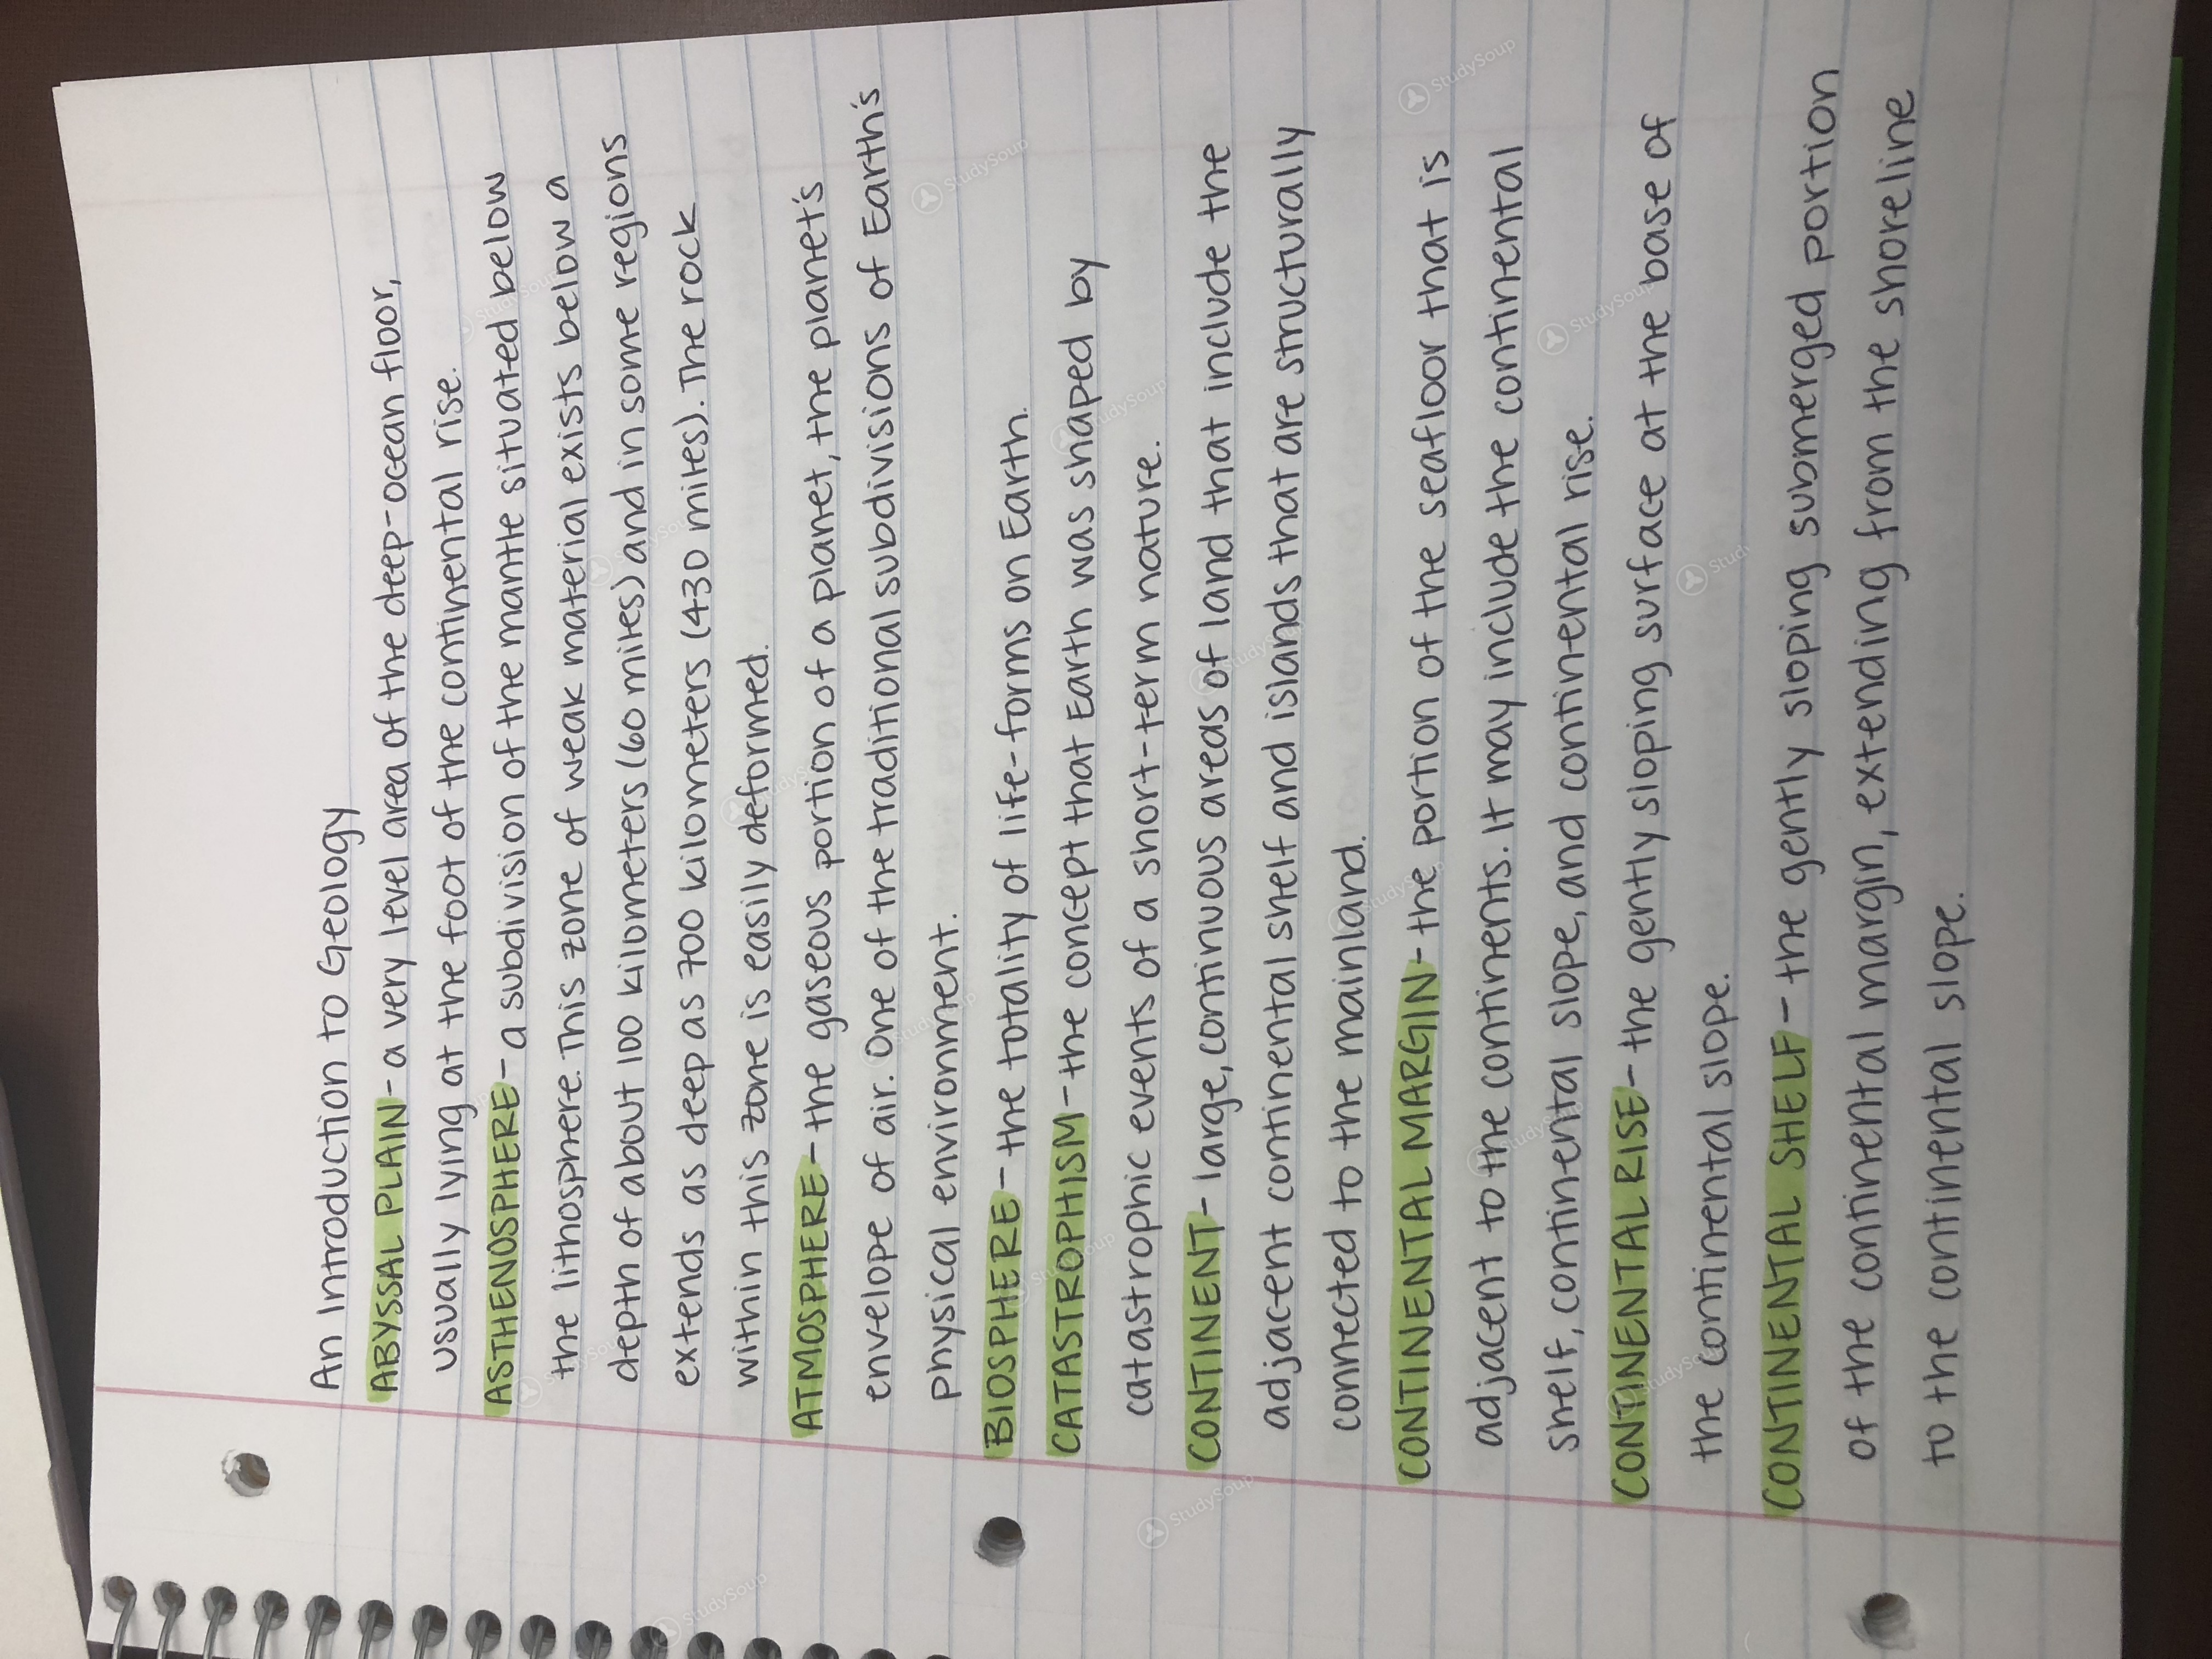 An Introduction to Geology
ABYSSAL PLAIN - a very level area of the deep-ocean floor,
usually lying at the foot of the continental rise.
ASTHENOSPHERE - a subdivision of the mantle situated below
the lithosphere. This zone of weak material exists below a
depth of about 100 kilometers (60 miles) and in some regions
extends as deep as 700 kilometers (430 miles). The rock
within this zone is easily deformed.
ATMOSPHERE - the gaseous portion of a planet, the planet's
envelope of air. One of the traditional subdivisions of Earth's
physical environment.
BIOSPHERE - the totality of life-forms on Earth.
CATASTROPHISM - the concept that Earth was shaped by
catastrophic events of a short-term nature.
CONTINENT - large, continuous areas of land that include the
adjacent continental shelf and islands that are structurally
connected to the mainland.
CONTINENTAL MARGIN - the portion of the seafloor that is
adjacent to the continents. It may include the continental
shelf, continental slope, and continental rise.
CONTINENTAL RISE - the gently sloping surface at the base of
the continental slope.
CONTINENTAL SHELF - the gently sloping submerged portion
of the continental margin, extending from the shoreline
to the continental slope.
StudySoup
StudySoup
StudySoup
StudySoup
StudySoup
StudySoup